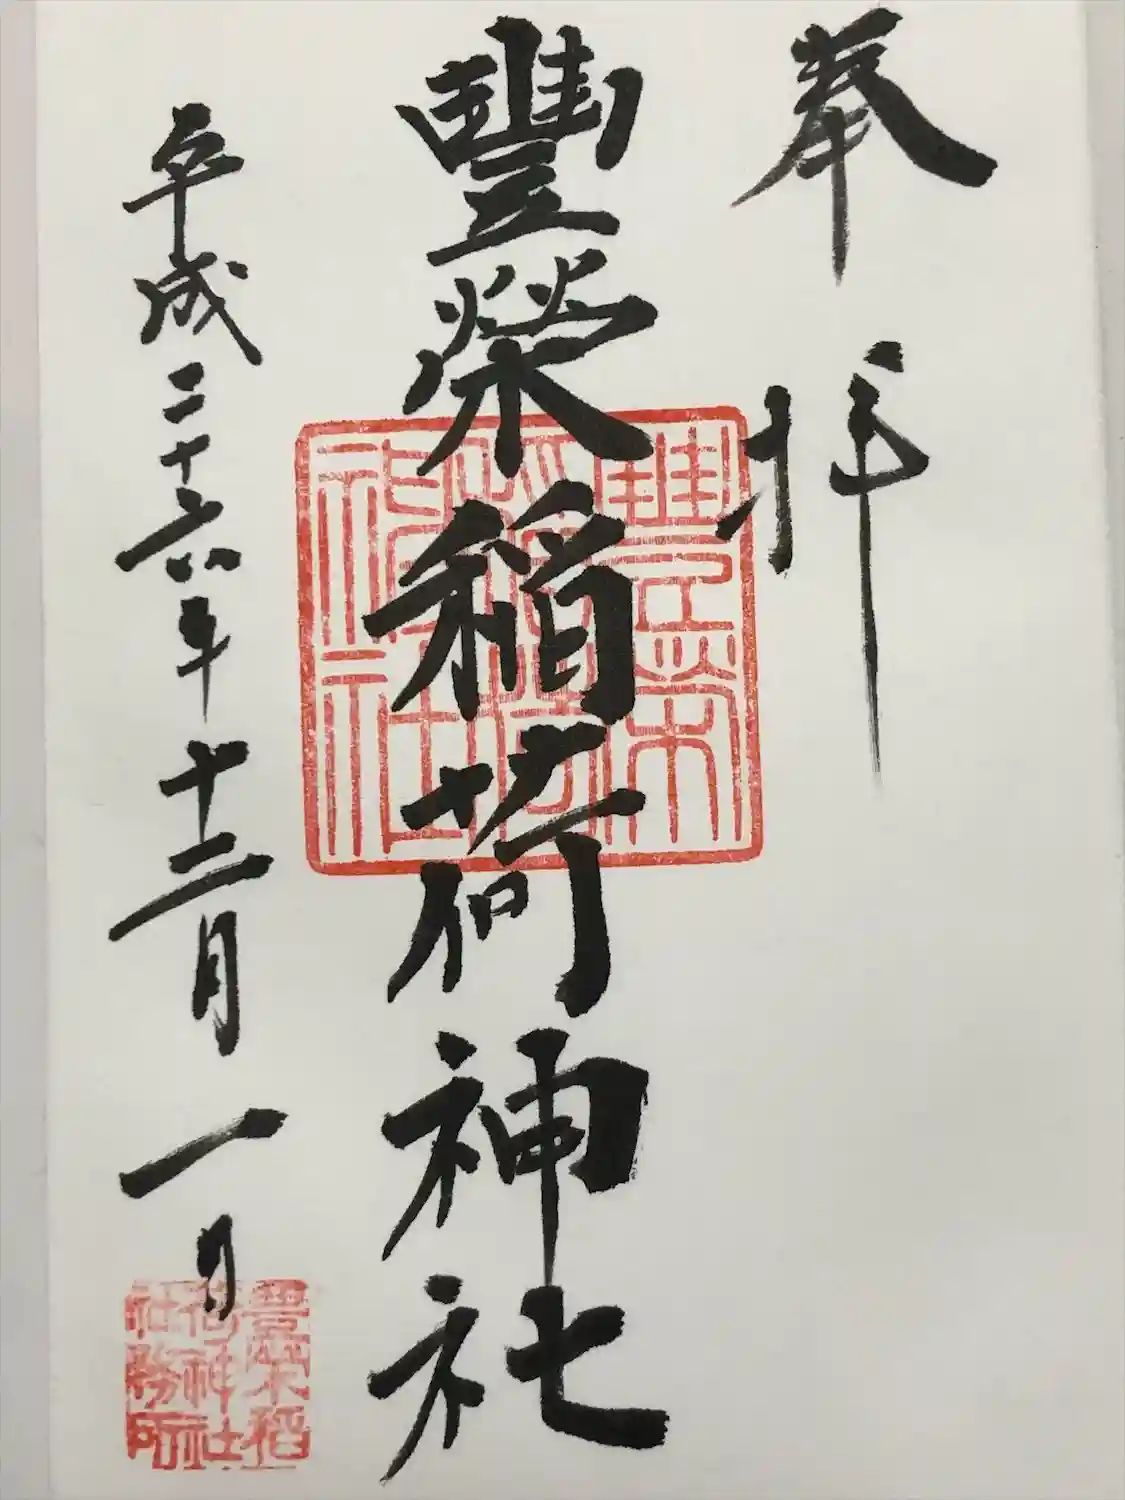 奉拝
豐榮稲荷神社
平成二十六年十二月一日
豊榮稲荷神社
豊榮稲荷神社社務所